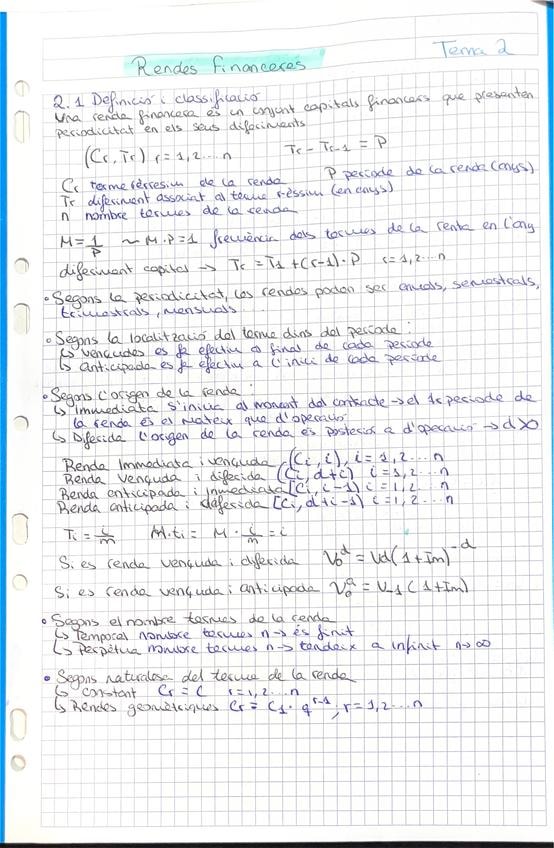 Tema 2
Rendes financeres
2.1 Definició i classificació
Una renda financera és un conjunt capitals financers que presenten
periodicitat en els seus diferiments
(Cr, Tr) r=1,2...n Tr - Tr-1 = P
Cr terme rèrresim de la renda P període de la renda (anys)
Tr diferiment associat al terme r-èssim (en anys)
n nombre termes de la renda
M = 1/P ~ M·P=1 freqüència dels termes de la renta en l'any
diferiment capital → Tr = T1 + (r-1)·P r=1,2...n
• Segons la periodicitat, les rendes poden ser anuals, semestrals,
trimestrals, mensuals...
• Segons la localització del terme dins del període:
↳ vençudes es fa efectiu a final de cada període
↳ anticipada es fa efectiu a l'inici de cada període
• Segons l'origen de la renda:
↳ Immediata s'inicia al moment del contracte → el 1r període de
la renda és el mateix que d'operació
↳ Diferida l'origen de la renda és posterior a d'operació → d>0
Renda Immediata i vençuda (Ci, i), i=1,2...n
Renda vençuda i diferida (Ci, d+i) i=1,2...n
Renda anticipada i Inmediata [Ci, i-1) i=1,2...n
Renda anticipada i deferida [Ci, d+i-1) i=1,2...n
Ti = i/m M·ti = M · i/m = i
Si es renda vençuda i diferida V₀ᵈ = Vd(1+Im)⁻ᵈ
Si es renda vençuda i anticipada V₀ᵃ = V-1 (1+Im)
• Segons el nombre termes de la renda
↳ Temporal nombre termes n → és finit
↳ Perpètua nombre termes n → tendeix a infinit n→∞
• Segons naturalesa del terme de la renda
↳ constant Cr = C r=1,2...n
↳ Rendes geomètriques Cr = C1 · q^r-1; r=1,2...n